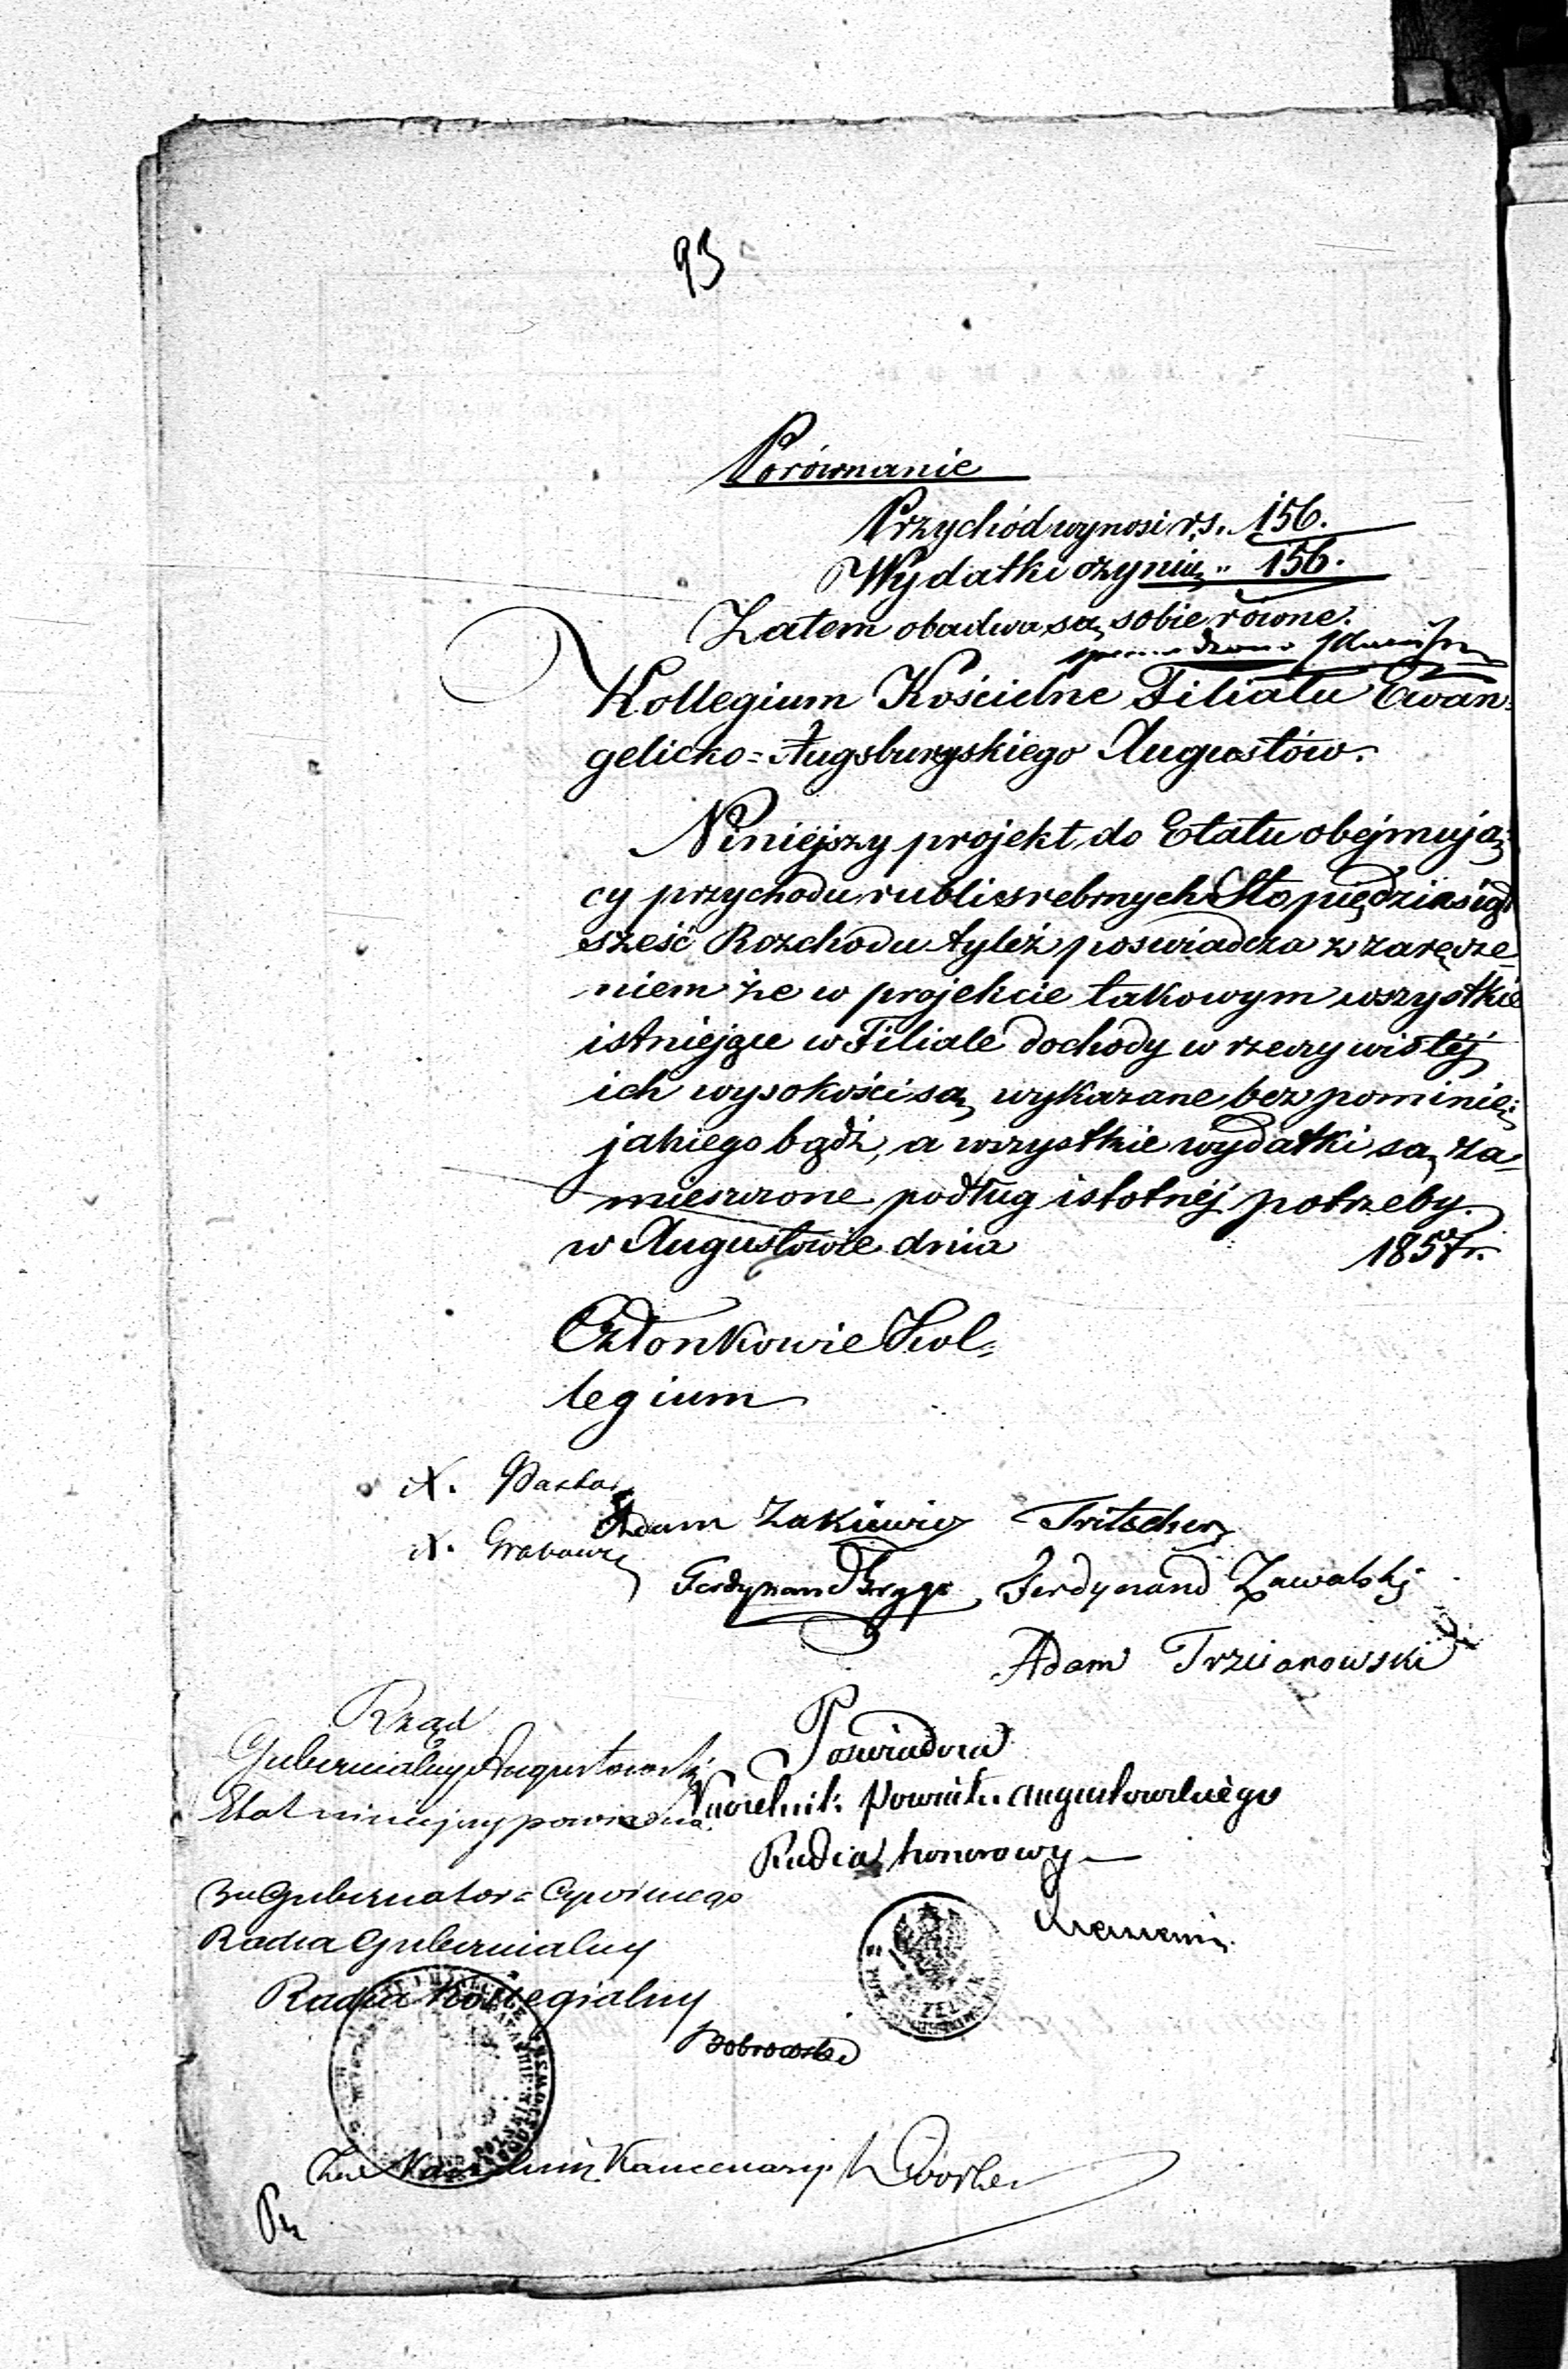 93
Porównanie
Przychód wynosi r.s. 156.
Wydatki czynią " 156.
Zatem obadwa są sobie równe.
Kollegium Kościelne Filiału Ewan=
gelicko=Augsburgskiego Augustów.
Niniejszy projekt do Etatu obejmują=
cy przychodu rubli srebrnych Sto pięćdziesiąt
sześć Rozchodu tyleż poswiadcza z zaręcze=
niem że w projekcie takowym wszystkie
istniejące w Filiale dochody w rzeczywistéj
ich wysokości są wykazane bez pominię:
jakiego bądź, a wszystkie wydatki są za=
mieszczone podług istotnéj potrzeby.
w Augustowie dnia 1857 r.
Członkowie Kol=
legium
X. Pastor
Adam Zakiewicz Fritscher
X. Grabowz
Ferdynand Ferdynand Zawalski
Adam Trzcianowski
Rząd
Gubernialny Augustowski
Etat niniejszy poswiadcza.
Poswiadcza
Naczelnik Powiatu Augustowskiego
Radca honorowy
za Gubernatora Cywilnego
Radca Gubernialny
Radca Kollegialny
Bobrowski
Naczelnik Kancellaryi